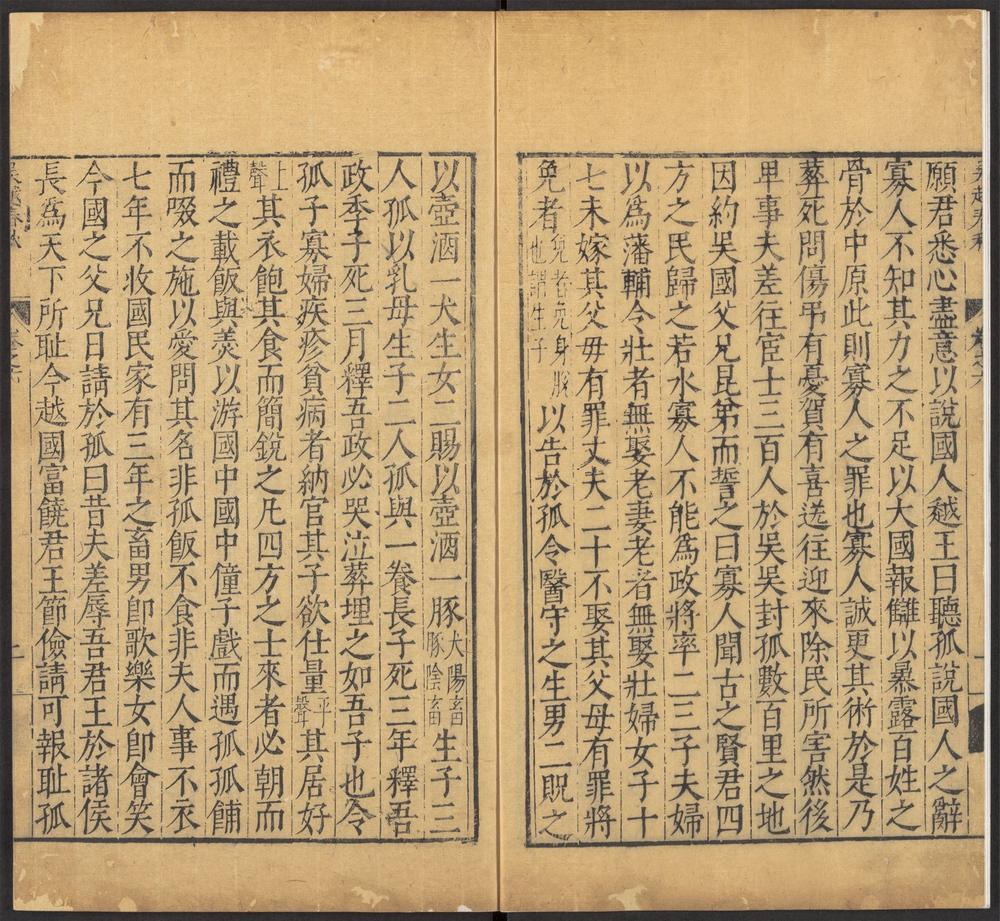 願君悉心盡意以說國人越王曰聽孤說國人之辭
寡人不知其力之不足以大國報讎以暴露百姓之
骨於中原此則寡人之罪也寡人誠更其術於是乃
葬死問傷弔有憂賀有喜送往迎來除民所害然後
卑事夫差往宦士三百人於吳吳封孤數百里之地
因約吳國父兄昆弟而誓之曰寡人聞古之賢君四
方之民歸之若水寡人不能為政將率二三子夫婦
以為藩輔令壯者無娶老妻老者無娶壯婦女子十
七未嫁其父母有罪丈夫二十不娶其父母有罪將
免者免者免身脫也謂生子以告於孤令醫守之生男二貺之
以壺酒一犬生女二賜以壺酒一豚犬陽畜豚陰畜生子三
人孤以乳母生子二人孤與一養長子死三年釋吾
政季子死三月釋吾政必哭泣葬埋之如吾子也令
孤子寡婦疾疹貧病者納官其子欲仕量平聲其居好
上聲其衣飽其食而簡銳之凡四方之士來者必朝而
禮之載飯與羹以游國中國中僮子戲而遇孤孤餔
而啜之施以愛問其名非孤飯不食非夫人事不衣
七年不收國民家有三年之畜男卽歌樂女卽會笑
今國之父兄日請於孤曰昔夫差辱吾君王於諸侯
長爲天下所恥今越國富饒君王節儉請可報恥孤
吳越春秋